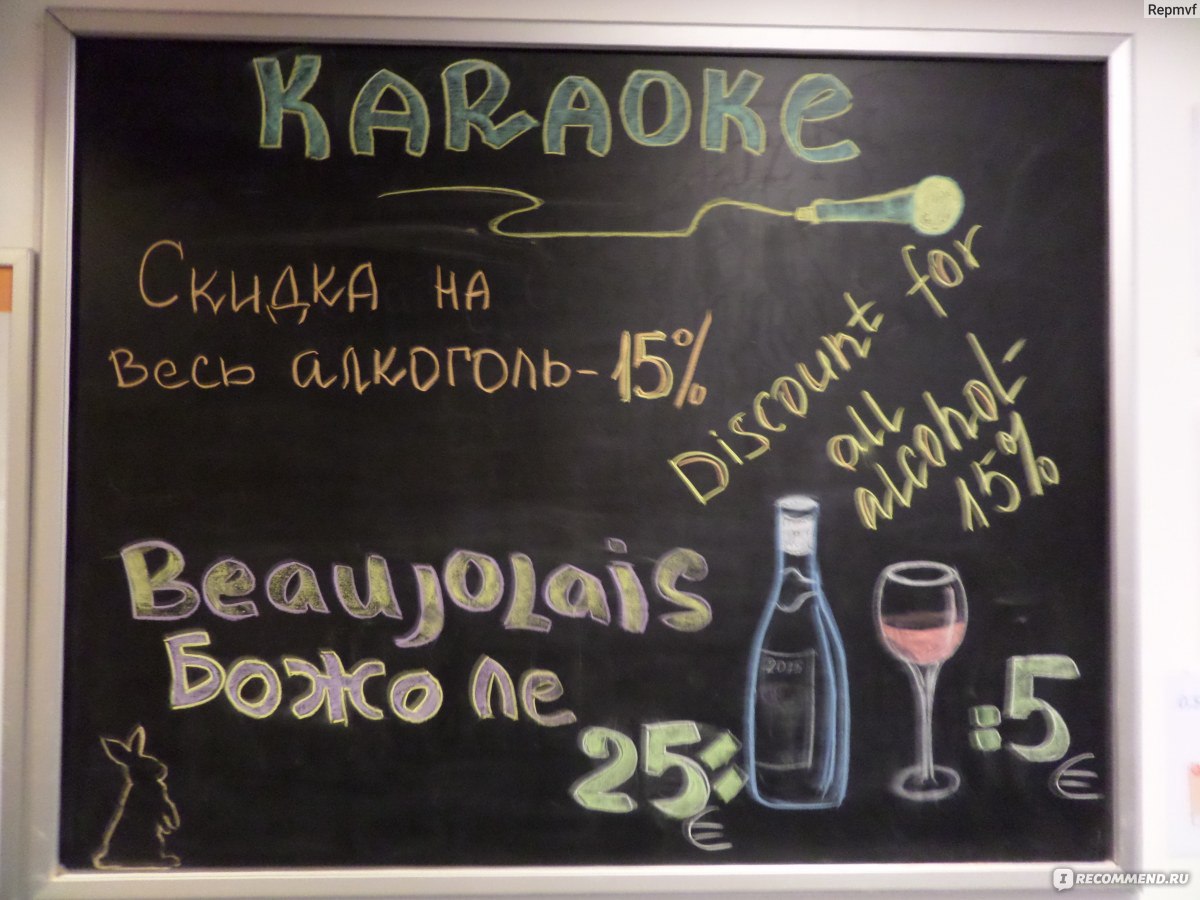 Repmvf
KARAOKE
Скидка на
весь алкоголь - 15%
Discount for
all
alcohol -
15%
Beaujolais
Божоле
2018
25 :
€
: 5
€
IRECOMMEND.RU